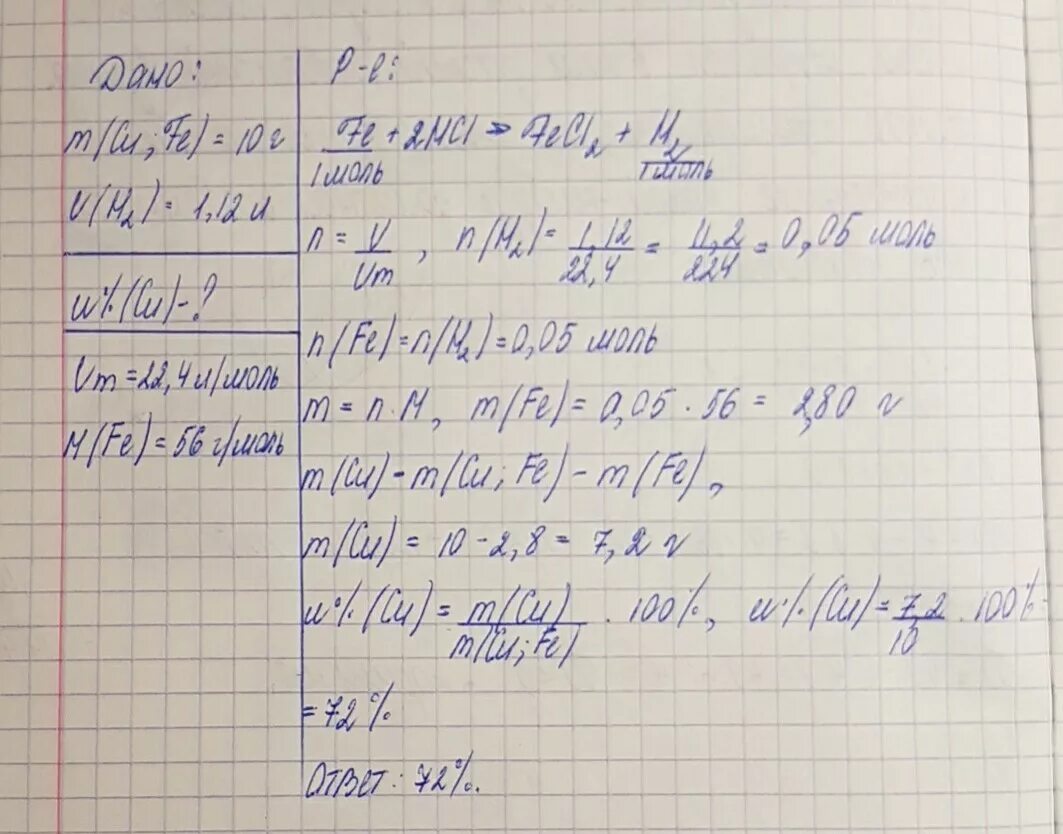 Дано:
m(Cu; Fe) = 10 г
V(H₂) = 1,12 л
w%(Cu) - ?
Vm = 22,4 л/моль
M(Fe) = 56 г/моль
Р-е:
Fe + 2HCl → FeCl₂ + H₂
1 моль 1 моль
n = V/Vm, n(H₂) = 1,12/22,4 = 11,2/224 = 0,05 моль
n(Fe) = n(H₂) = 0,05 моль
m = n · M, m(Fe) = 0,05 · 56 = 2,80 г
m(Cu) - m(Cu; Fe) - m(Fe),
m(Cu) = 10 - 2,8 = 7,2 г
w%(Cu) = m(Cu)/m(Cu; Fe) · 100%, w%(Cu) = 7,2/10 · 100% =
= 72%
Ответ: 72%.